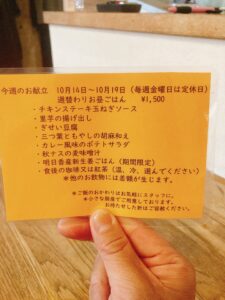 今週のお献立 10月14日～10月19日(毎週金曜日は定休日)
週替わりお昼ごはん ¥1,500
・チキンステーキ玉ねぎソース
・里芋の揚げ出し
・ぎせい豆腐
・三つ葉ともやしの胡麻和え
・カレー風味のポテトサラダ
・秋ナスの麦味噌汁
・明日香産新生姜ごはん(期間限定)
・食後の珈琲又は紅茶(温、冷、選んでください)
*他のお飲物には差額が生じます。
*ご飯のおかわりはお気軽にスタッフに。
*小さな厨房でご用意しております。
お待たせした折はご容赦ください。